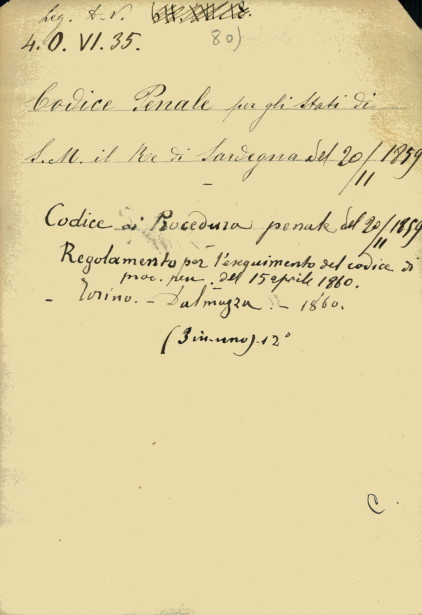 Leg. A-V.
4. O. VI. 35. 80)
Codice Penale per gli Stati di
S. M. il Re di Sardegna del 20/11 1859
Codice di Procedura penale del 20/11 1859
Regolamento per l'eseguimento del codice di
proc. pen. del 15 aprile 1860.
- Torino. - Dalmazza. - 1860.
(3 in-uno)-12°
C.